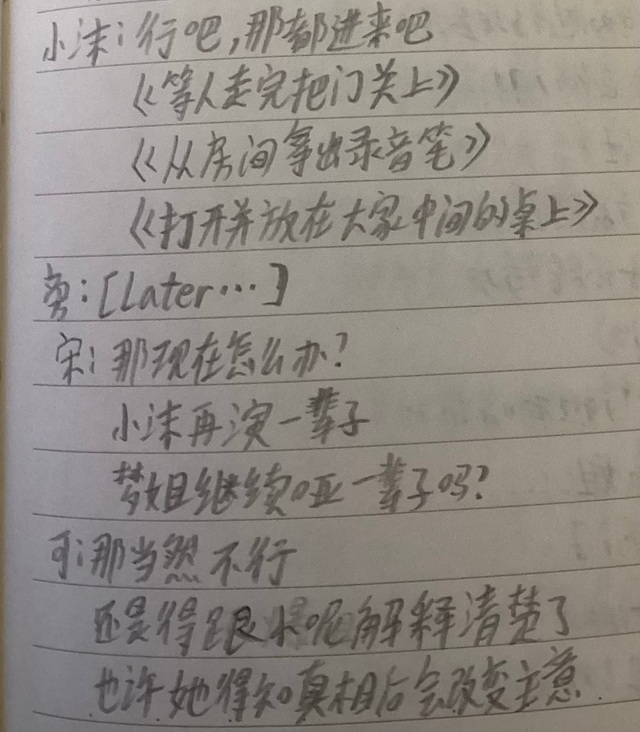 小沫:行吧,那都进来吧
《等人走完把门关上》
《从房间拿出录音笔》
《打开并放在大家中间的桌上》
旁:[Later…]
宋:那现在怎么办?
小沫再演一辈子
梦姐继续哑一辈子吗?
可:那当然不行
还是得跟小呢解释清楚了
也许她得知真相后会改变主意